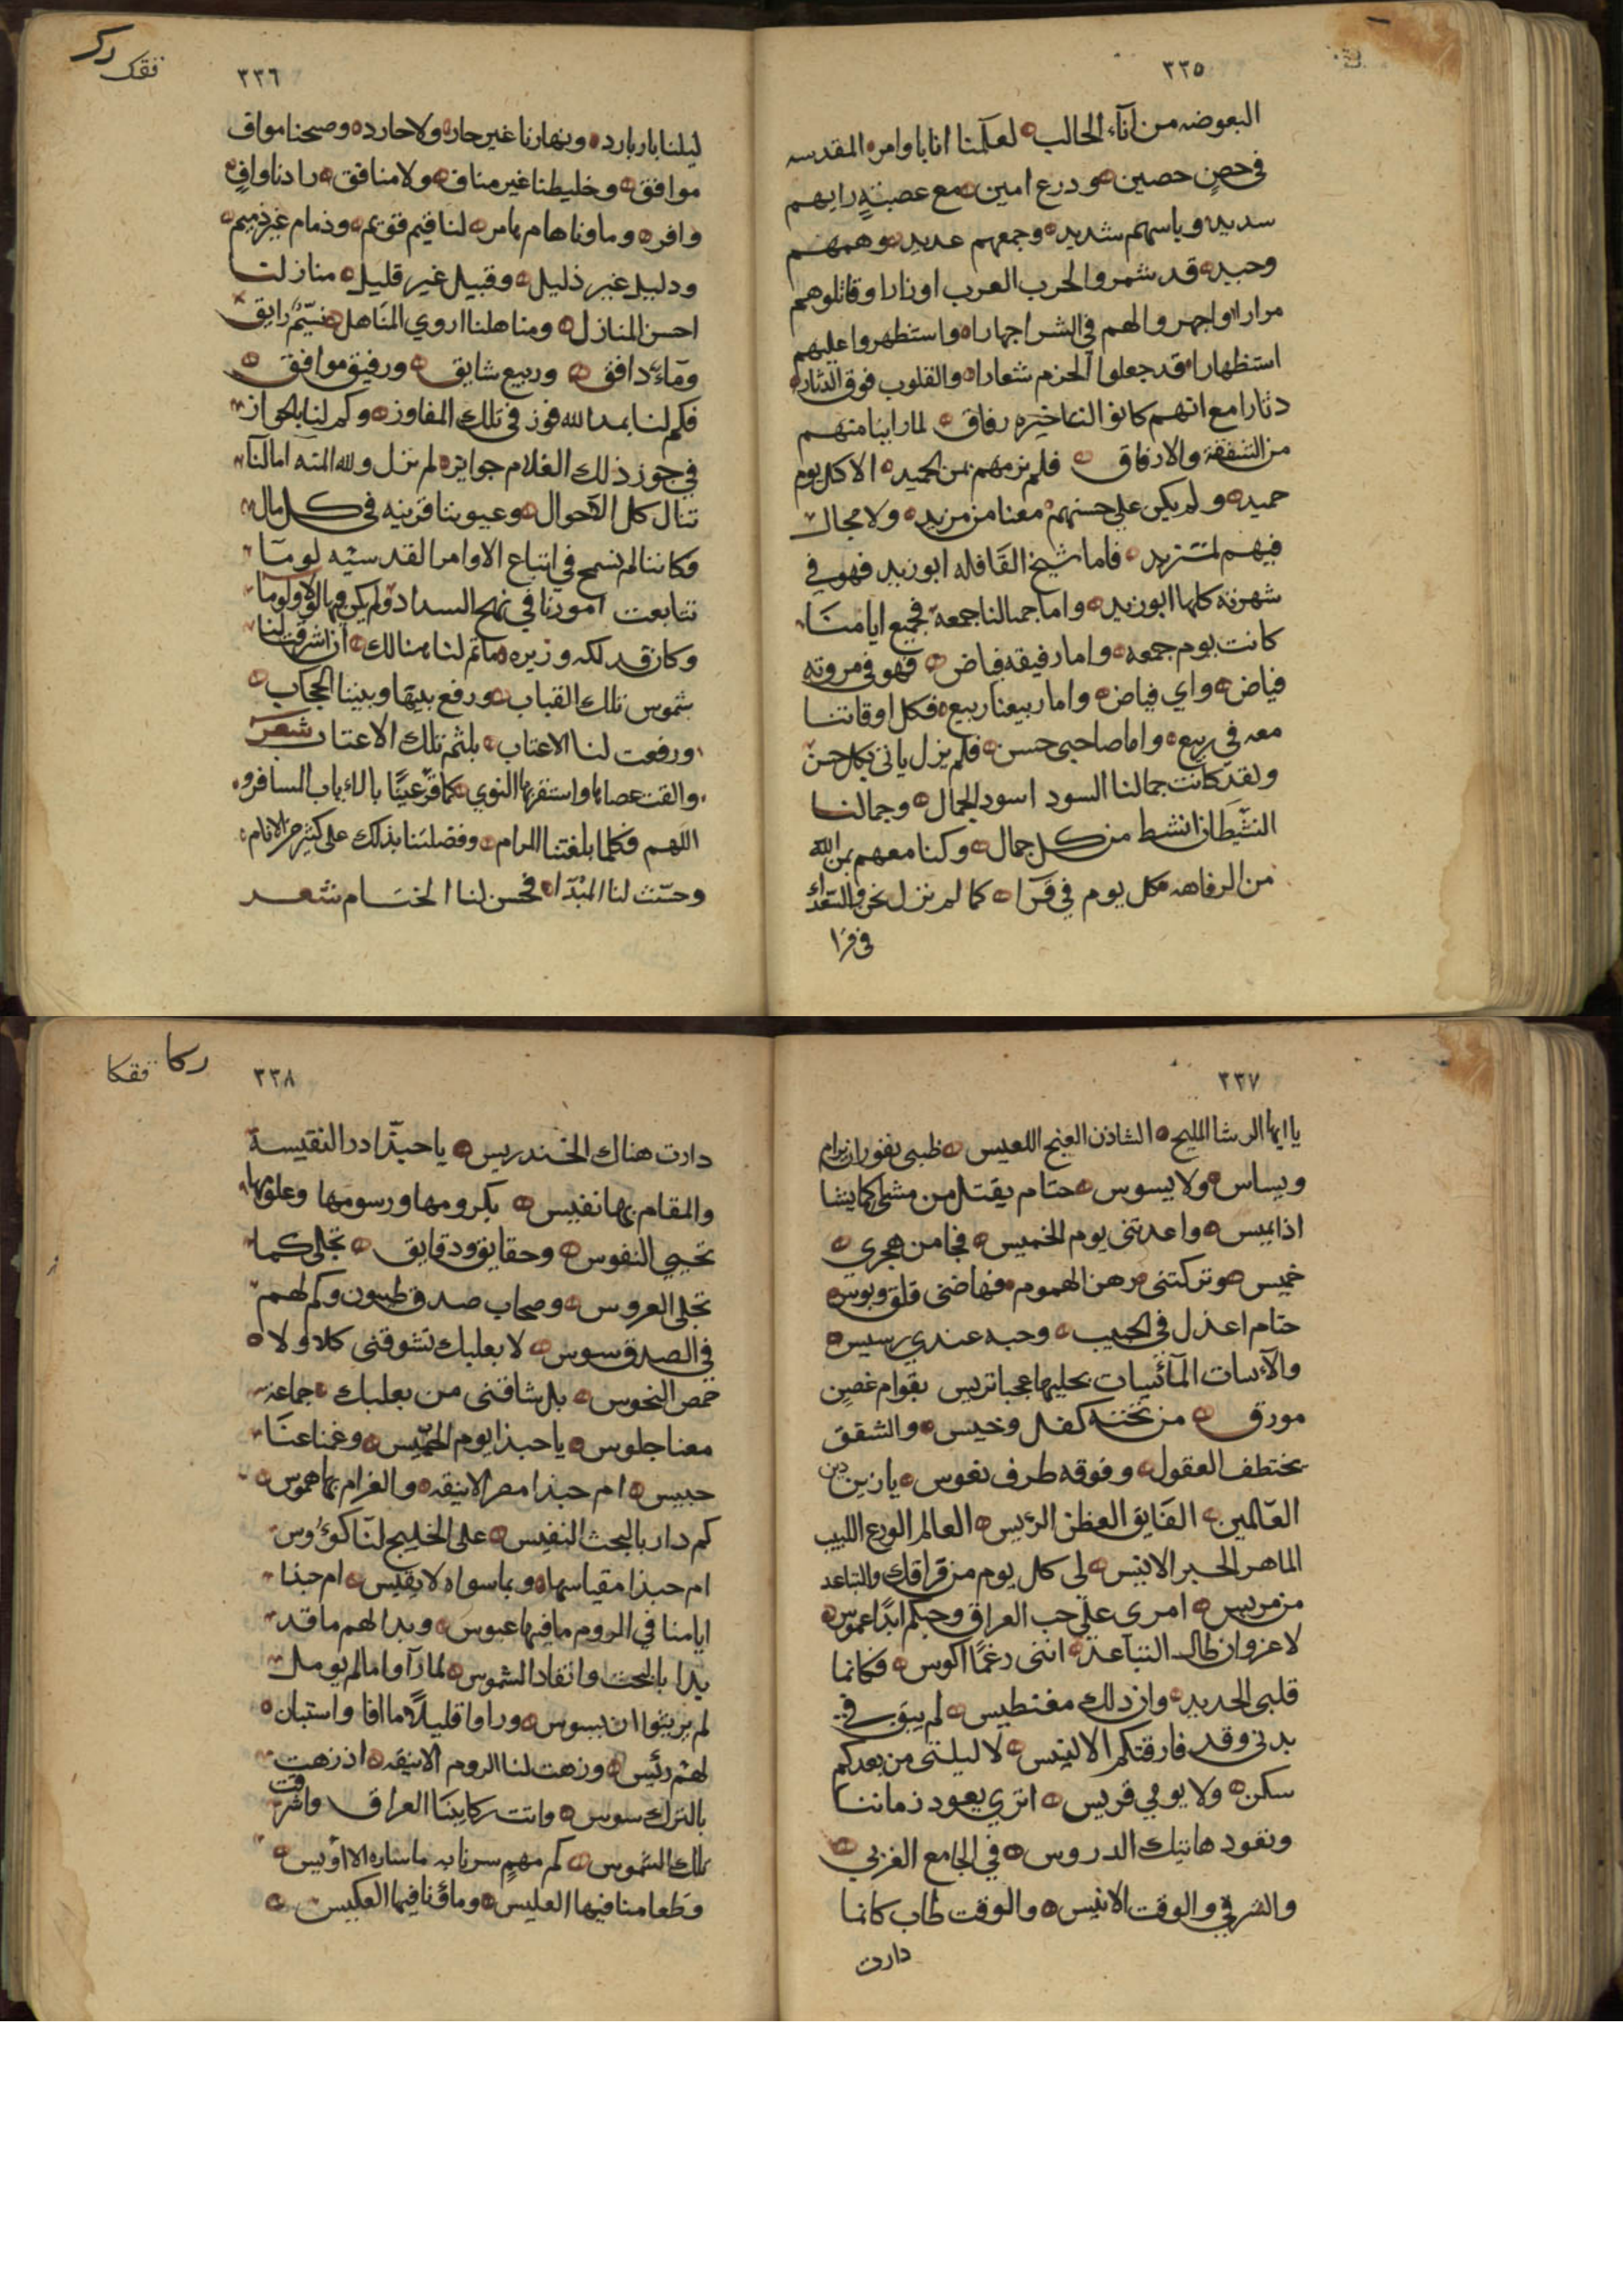 ٣٣٥
البعوضه من آناء الحالب لعلمنا انا باوامره المقدسه
في حصن حصين ودرع امين مع عصبة رايهم
سديد وباسهم شديد وجمعهم عديد وهمهم
وحيد قد شمروا لحرب العرب اوزارا وقاتلوهم
مرارا واجهروا لهم في الشر اجهارا واستظهروا عليهم
استظهارا قد جعلوا الحزم شعارا والقلوب فوق الدثار
دثارا مع انهم كانوا لنا خيره رفاق لما راينا منهم
من الشفقة والارفاق فلم نر مهم بمن الحميد الا كل يوم
حميد ولم يكن على حسنهم معنا من مزيد ولا مجال
فيهم لمتزيد فاما شيخ القافله ابوزيد فهو في
شهرته كلها ابوزيد واما جمالنا جمعة فجميع ايامنا
كانت يوم جمعه واما رفيقه فياض فهو في مروته
فياض واي فياض واما ربيعنا ربيع فكل اوقاتنا
معه في ربيع واما صاحبي حسن فلم يزل ياتي بكل حسن
ولقد كانت جمالنا السود اسود الجمال وجمالنا
النشيطان انشط من كل جمال وكنا معهم بمن الله
من الرفاهه كل يوم في قرا كما لم نزل نحن والسعداء
في قرا
٣٣٦
ركر
فقك
ليلنا بار بارد ونهارنا غير حار ولا حارد وصحنا مواف
موافق وخليطنا غير مناف ولا منافق زادنا واف
وافر وماونا هام هامر لنا قيم قويم وذمام غير ذميم
ودليل غير ذليل وقبيل غير قليل منازلنا
احسن المنازل ومناهلنا اروي المناهل نسيم رايق
وماء دافق وربيع شايق ورفيق موافق
فكم لنا بحمد الله فوز في تلك المفاوز وكم لنا بالجواز
في جوز ذلك الغلام جوايز لم نزل ولله المنه امالنا
تنال كل الاحوال وعيوننا قريره في كل مال
فكاننا لم نسمح في اتباع الاوامر القدسيه لوما
تتابعت امورنا في نهج السداد ولم يكن فيها لولا ولوما
وكان قد لكه وزيره ما تم لنا هنالك ان اشرقت لنا
شموس تلك القباب ورفع بينها وبيننا الحجاب
ورفعت لنا الاعتاب بلثم تلك الاعتاب شعر
والقت عصاها واستقر بها النوي كما قر عينا بالاياب المسافر
اللهم فكلما بلغتنا المرام وفضلتنا بذلك على كثير من الانام
وحسنت لنا المبدا فحسن لنا الختام شعر
٣٣٧
يا ايها الرشا المليح الشاذن الغنج اللعيس ظبى نفور ان يرام
ويساس ولا يسوس حتام يقتل من مشى كما يشا
اذا يميس واعدتنى يوم الخميس فجا من هجرى
خميس وتركتنى رهن الهموم فنها ضنى قلق وبوس
حتام اعذل في الحبيب وحبه عندي رسيس
والآنسات المآئسات بحليها عجبا تريس بقوام غصن
مورق من تحته كفل وخيس والشقق
يختطف العقول وفوقه طرف نعوس يا زين دين
العالمين الفايق الفطن الرئيس العالم الورع اللبيب
الماهر الحبر الانيس لى كل يوم من فراقك والتباعد
من مريس امرى على حب العراق وحبكم ابدا عموس
لا غرو ان طال التباعد اننى رغما اكوس فكانما
قلبى الحديد وان ذلك مغنطيس لم يبق في
بدني وقد فارقتكم الا لنيس لا ليلتى من بعدكم
سكن ولا يومي قريس اترى يعود زماننا
ونقود هاتيك الدروس في الجامع الغربي
والشرقي والوقت الانيس والوقت طاب كانما
دارت
٣٣٨
ركا
فقكا
دارت هناك الخندريس يا حبذا در النفيسة
والمقام بها نفيس بكرومها ورسومها وعلومها
تحيي النفوس وحقايق ودقايق تجلى كما
تجلى العروس وصحاب صدق طيبون وكم لهم
في الصدق سوس لا بعلبك تشوقنى كلا ولا
حمص النحوس بل شاقنى من بعلبك جماعة
معنا جلوس يا حبذا يوم الخميس وغمنا عنا
حبيس ام حبذا مصر الانيقه والغرام بها هموس
كم دار بالبحث النفيس على الخليج لنا كؤوس
ام حبذا مقياسها وبما سواه لا يقيس ام حبذا
ايامنا في الروم ما فيها عبوس وبدا لهم ما قد
بدا بالبحث وانقاد الشموس لما راوا ما لم يومل
لم يريبوا ان يسوس وراوا قليلا ما افا واستبان
لهم رئيس وزهت لنا الروم الانيقه اذ زهت
بالترك سوس واتت ركايبنا العراق واشرقت
تلك الشموس كم مهمه سرنا به ما ساره الا اويس
وطعامنا فيها العليس وماؤنا فيها العكيس